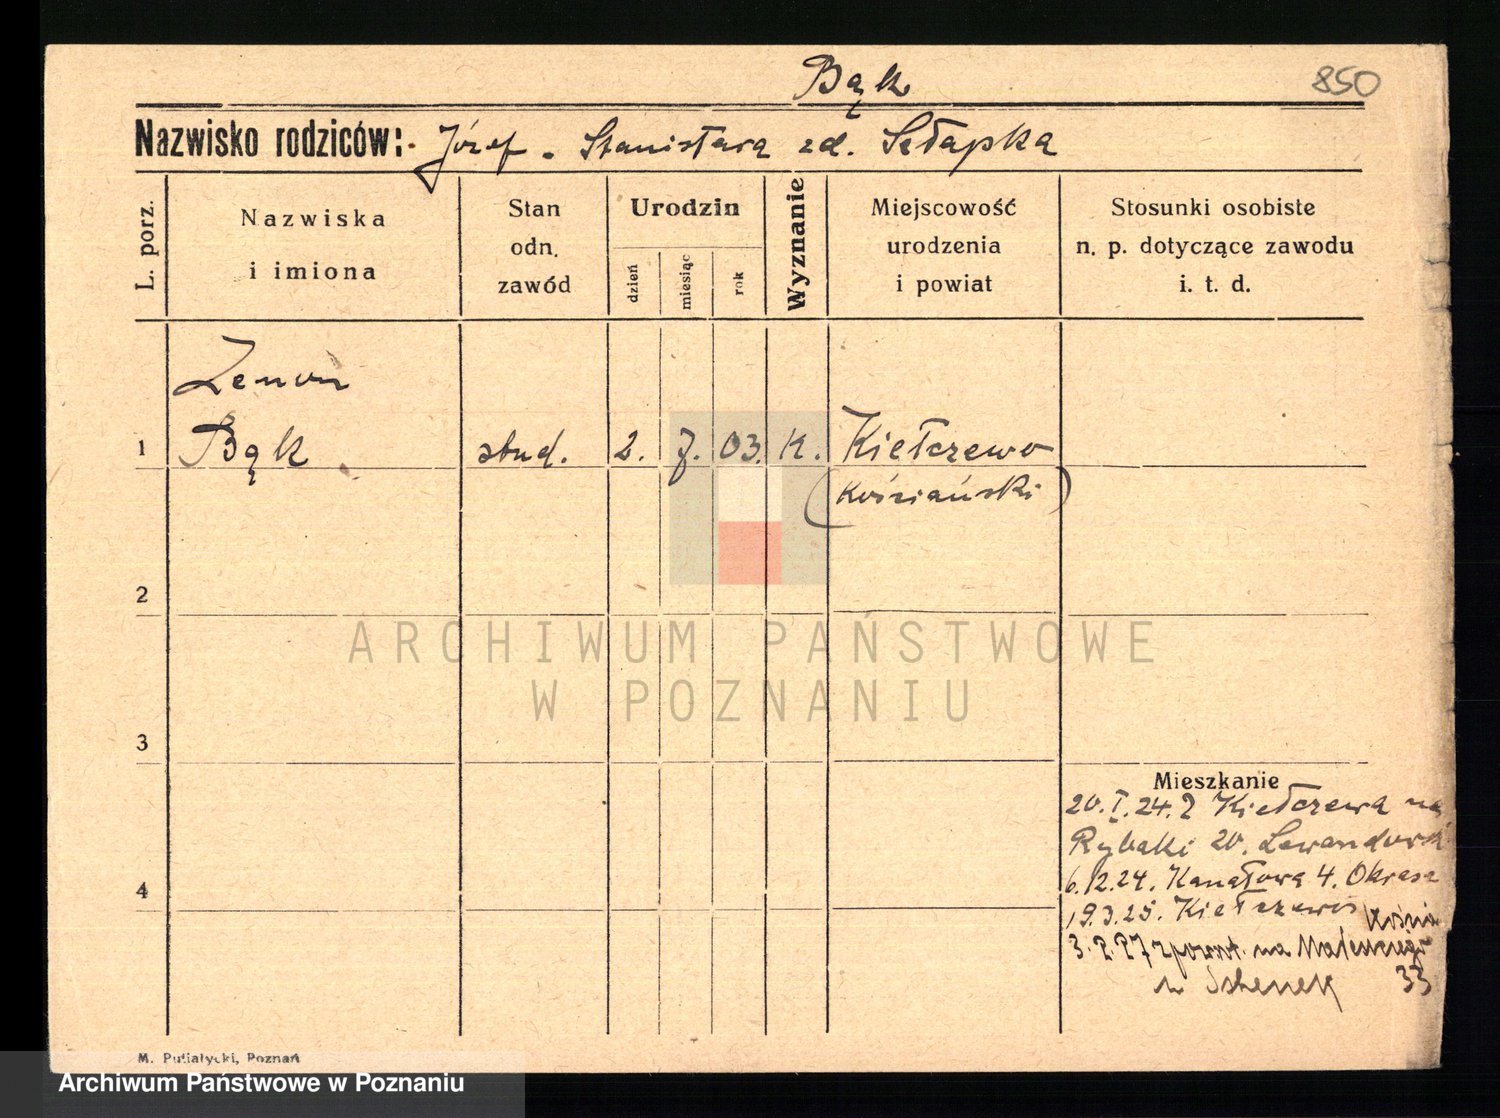 Bąk
850
Nazwisko rodziców: Józef - Stanisława zd. Szłapka
L. porz.
Nazwiska
i imiona
Stan
odn.
zawód
Urodzin
dzień
miesiąc
rok
Wyznanie
Miejscowość
urodzenia
i powiat
Stosunki osobiste
n. p. dotyczące zawodu
i. t. d.
Zenon
1 Bąk stud. 2. 7. 03. K. Kiełczewo
(Kościański)
2
ARCHIWUM PAŃSTWOWE
W POZNANIU
3
Mieszkanie
20.I.24. z Kiełczewa na
Rybaki 20. Lewandowsk
4
6.12.24. Kanałowa 4. Okrasa
19.3.25. Kiełczewo
3.2.27 zpowrt. na
33
M. Putiatycki, Poznań
Archiwum Państwowe w Poznaniu